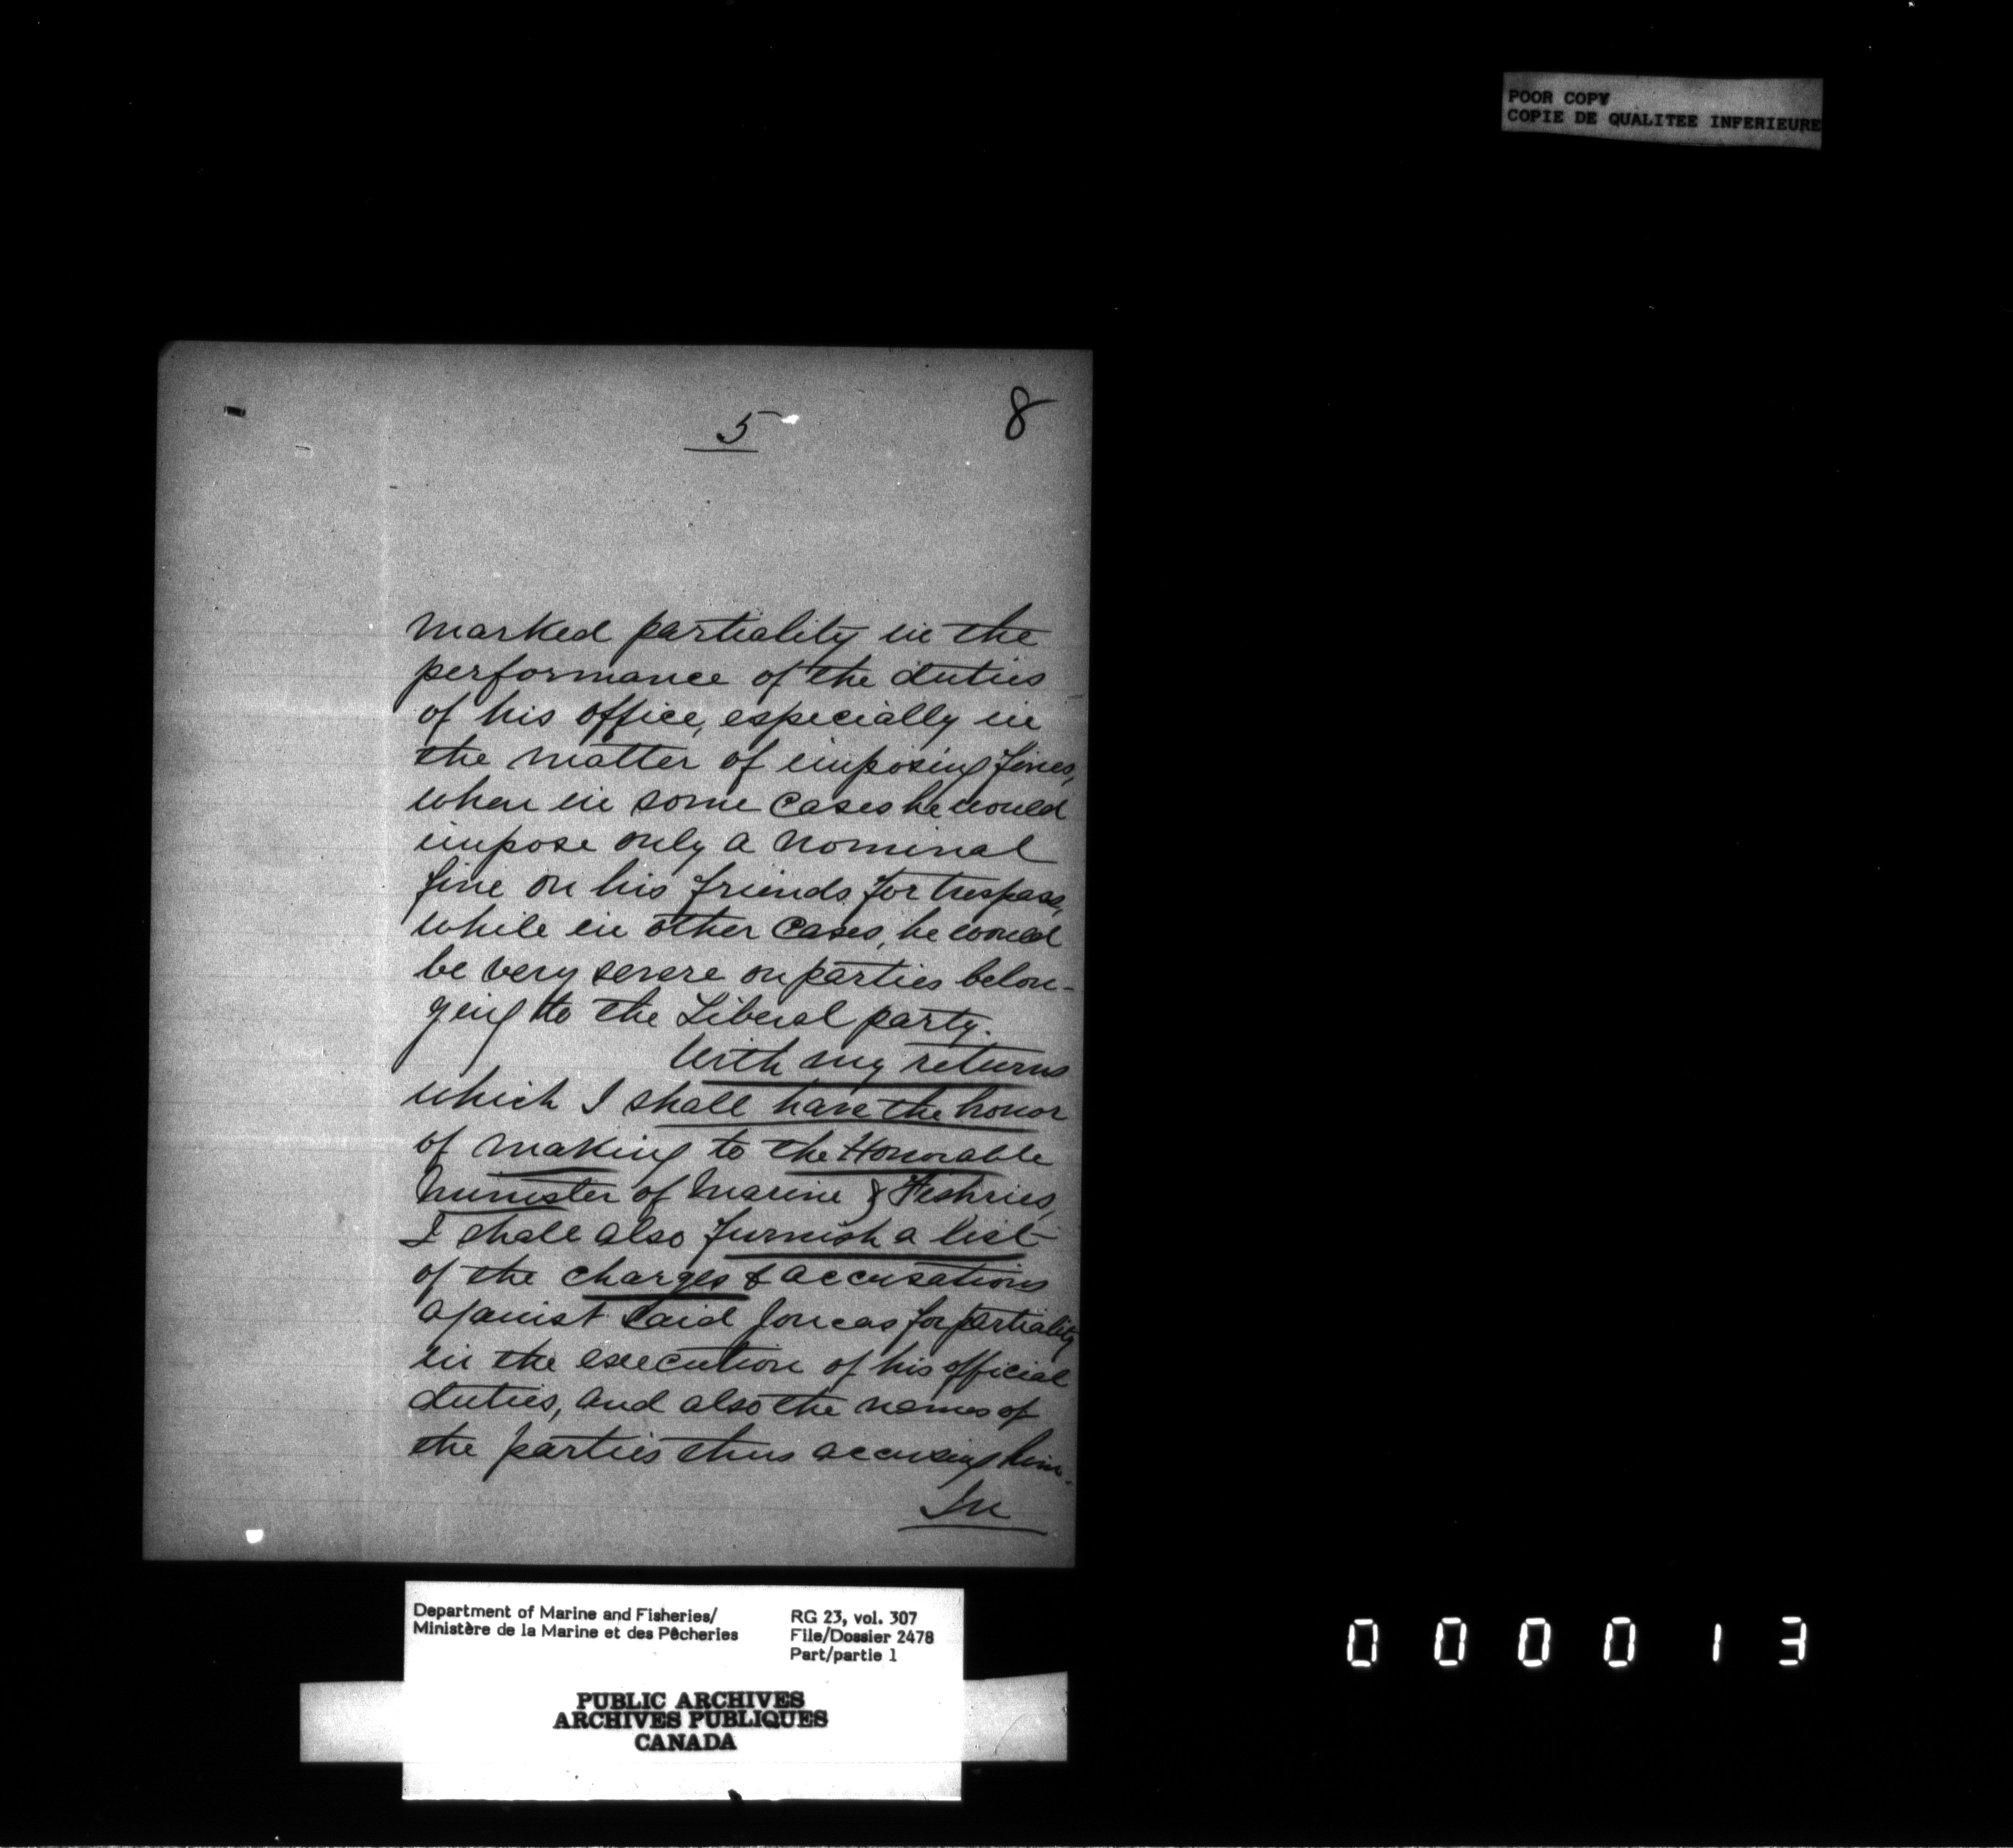 POOR COPY
COPIE DE QUALITEE INFERIEURE
5
8
marked partiality in the
performance of the duties
of his office, especially in
the matter of imposing fines,
when in some cases he would
impose only a nominal
fine on his friends for trespass,
while in other cases, he would
be very severe on parties belon-
ging to the Liberal party.
With my returns
which I shall have the honor
of making to the Honorable
Minister of Marine & Fishries,
I shall also furnish a list
of the charges & accusations
against said Joncas for partiality
in the execution of his official
duties, and also the names of
the parties thus accusing him.
In
Department of Marine and Fisheries/
Ministère de la Marine et des Pêcheries
RG 23, vol. 307
File/Dossier 2478
Part/partie 1
PUBLIC ARCHIVES
ARCHIVES PUBLIQUES
CANADA
000013